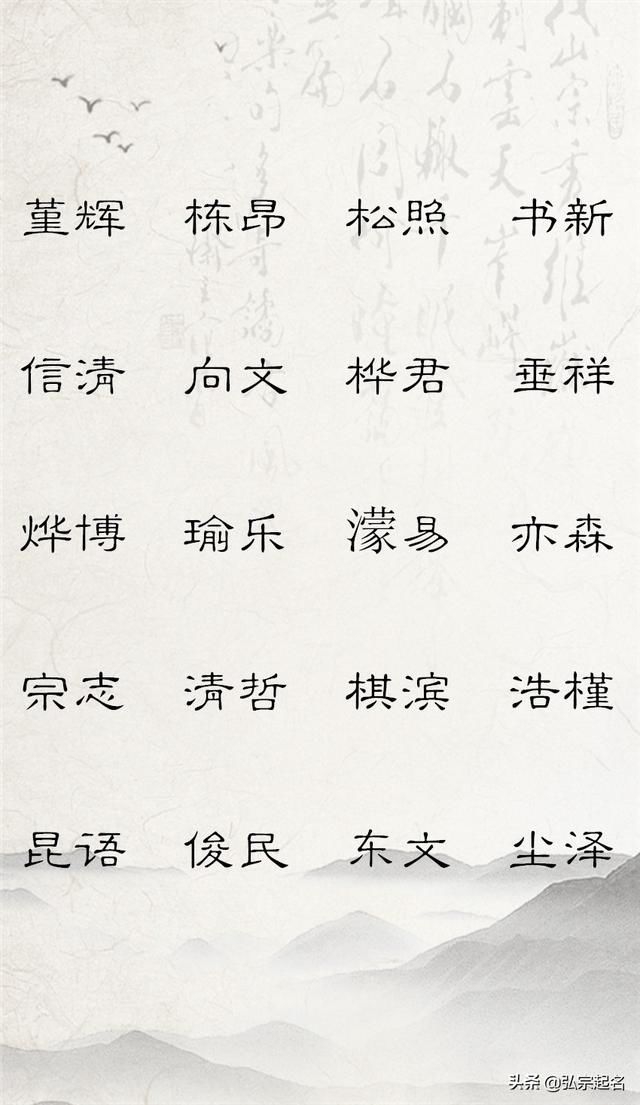 堇辉 栋昂 松照 书新
信清 向文 桦君 垂祥
烨博 瑜乐 濛易 亦森
宗志 清哲 棋滨 浩槿
昆语 俊民 东文 尘泽
头条 @弘宗起名